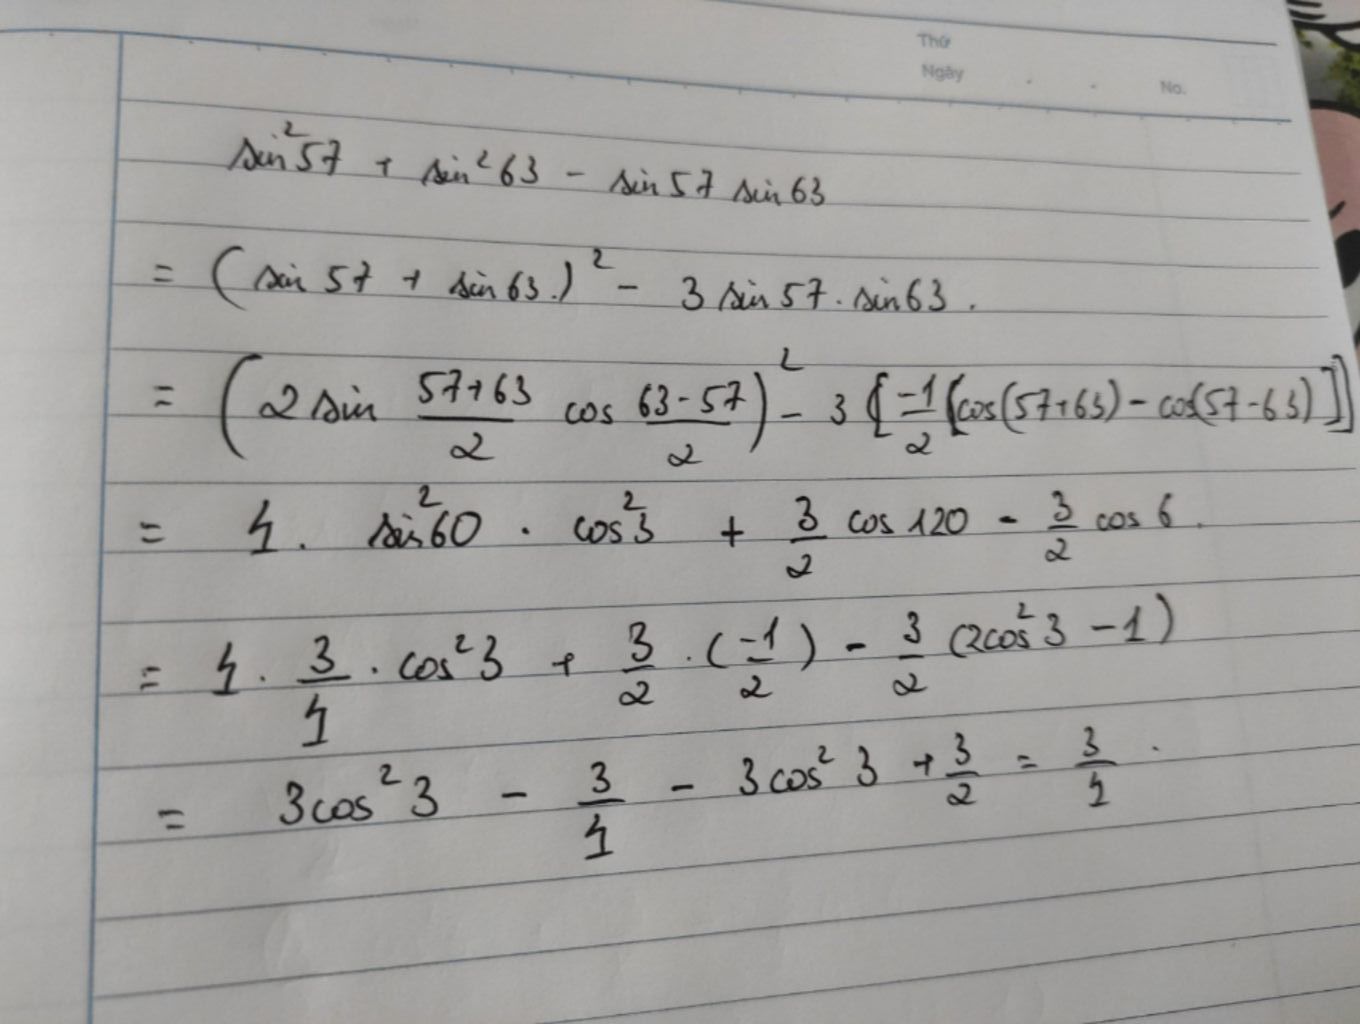 Thứ
Ngày No.
sin²57 + sin²63 - sin57 sin63
= (sin57 + sin63.)² - 3sin57.sin63.
= (2sin (57+63)/2 cos (63-57)/2)² - 3[-1/2[cos(57+63) - cos(57-63)]]
= 4. sin²60 . cos²3 + 3/2 cos120 - 3/2 cos6.
= 4. 3/4 . cos²3 + 3/2 .(-1/2) - 3/2 (2cos²3 - 1)
= 3cos²3 - 3/4 - 3cos²3 + 3/2 = 3/4.